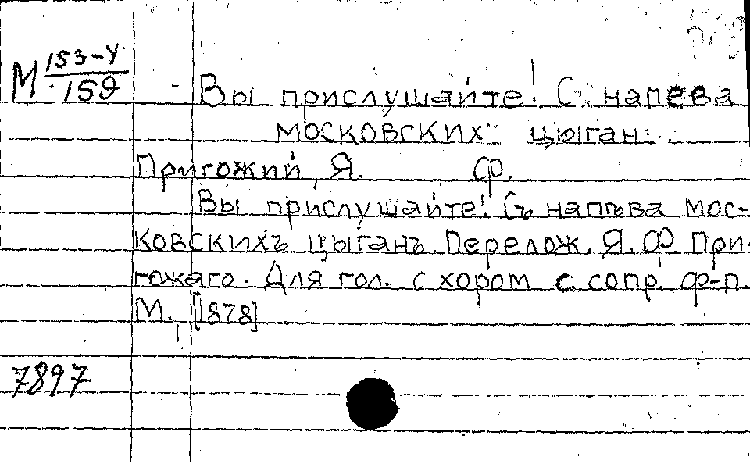 М 153-4/159
Вы прислушайте! С напева
московских цыган.
Пригожий, Я. Ф.
Вы прислушайте! Съ напѣва мос-
ковскихъ цыганъ. Перелож. Я. Ф. При-
гожаго. Для гол. с хором с сопр. ф-п.
М., [1878]
7897